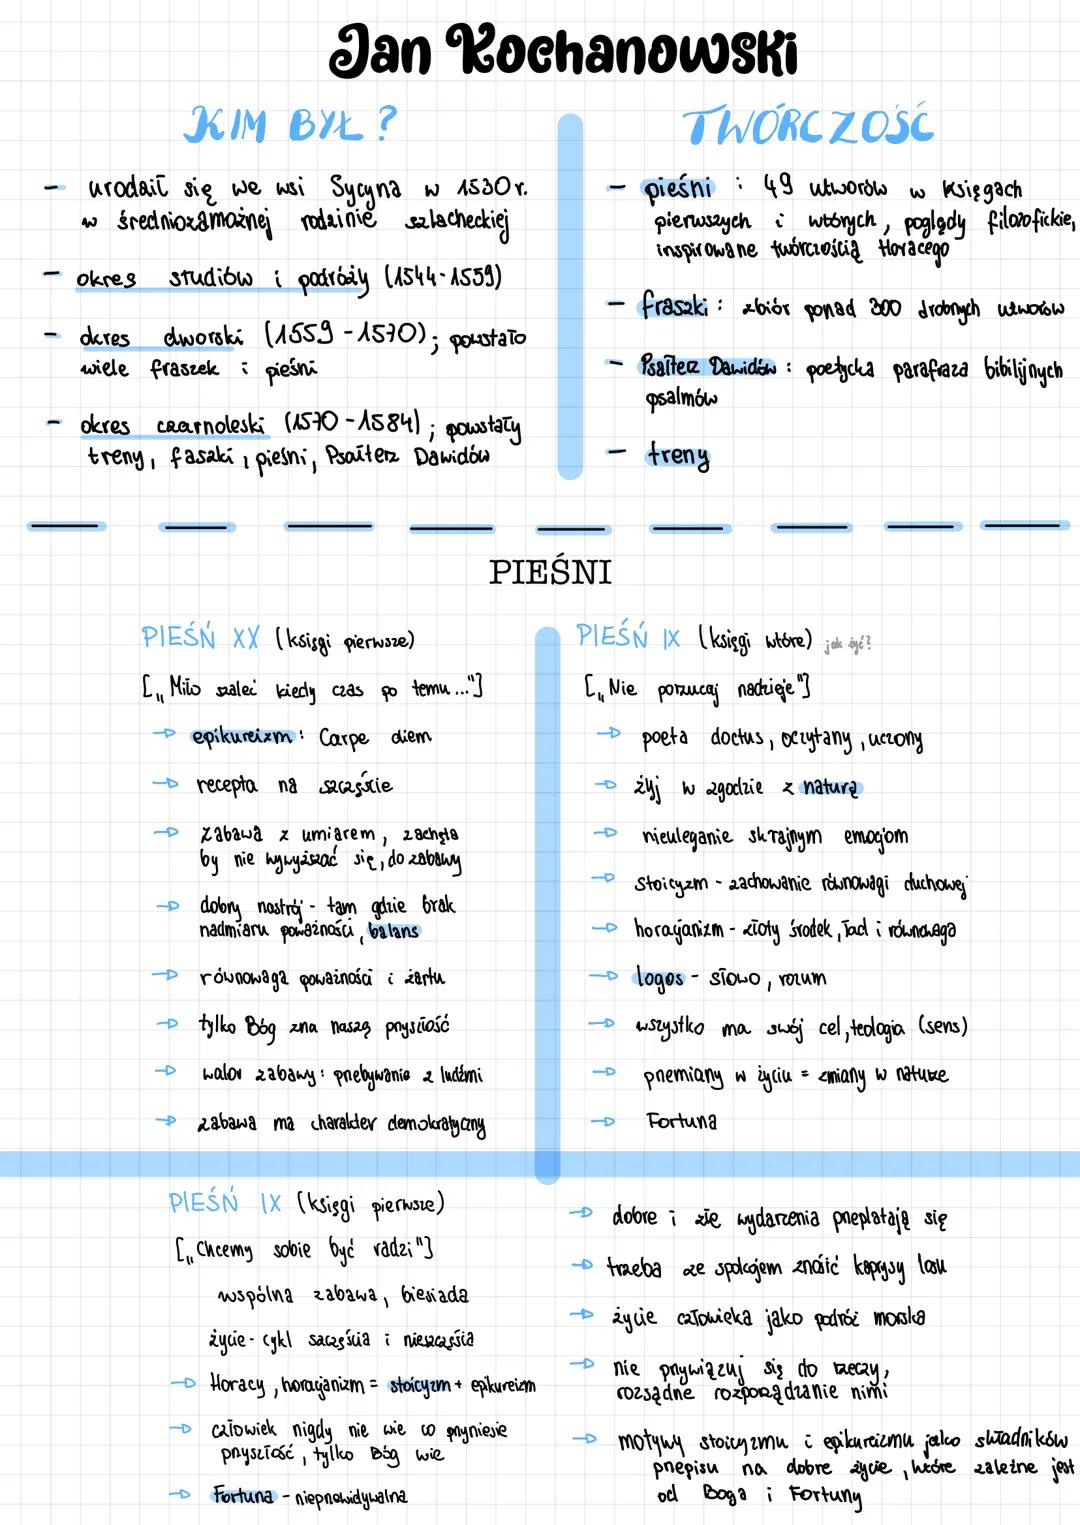 Jan Kochanowski
KIM BYŁ?
- urodził się we wsi Sycyna w 1530 r.
w średniozamożnej rodzinie szlacheckiej
- okres studiów i podróży (1544-1559)
- okres dworski (1559-1570); powstało
wiele fraszek i pieśni
- okres czarnoleski (1570-1584); powstały
treny, faszki, pieśni, Psałterz Dawidów
TWÓRCZOŚĆ
- pieśni : 49 utworów w księgach
pierwszych i wtórych, poglądy filozofickie,
inspirowane twórczością Horacego
- fraszki : zbiór ponad 300 drobnych utworów
- Psałterz Dawidów : poetycka parafraza bibilijnych
psalmów
- treny
PIEŚNI
PIEŚŃ XX (księgi pierwsze)
[„Miło szaleć kiedy czas po temu..."]
→ epikureizm: Carpe diem
→ recepta na szczęście
→ zabawa z umiarem, zachęta
by nie wywyższać się, do zabawy
→ dobry nastrój - tam gdzie brak
nadmiaru poważności, balans
→ równowaga poważności i żartu
→ tylko Bóg zna naszą przyszłość
→ walor zabawy: przebywanie z ludźmi
→ zabawa ma charakter demokratyczny
PIEŚŃ IX (księgi wtóre) jak żyć?
[„Nie porzucaj nadzieje"]
→ poeta doctus, oczytany, uczony
→ żyj w zgodzie z naturą
→ nieuleganie skrajnym emocjom
→ stoicyzm - zachowanie równowagi duchowej
→ horacjanizm - złoty środek, ład i równowaga
→ logos - słowo, rozum
→ wszystko ma swój cel, teologia (sens)
→ przemiany w życiu = zmiany w naturze
→ Fortuna
PIEŚŃ IX (księgi pierwsze)
[„Chcemy sobie być radzi"]
wspólna zabawa, biesiada
życie - cykl szczęścia i nieszczęścia
→ Horacy, horacjanizm = stoicyzm + epikureizm
→ człowiek nigdy nie wie co przyniesie
przyszłość, tylko Bóg wie
→ Fortuna - nieprzewidywalna
→ dobre i złe wydarzenia przeplatają się
→ trzeba ze spokojem znosić kaprysy losu
→ życie człowieka jako podróż morska
→ nie przywiązuj się do rzeczy,
rozsądne rozporządzanie nimi
→ motywy stoicyzmu i epikureizmu jako składników
przepisu na dobre życie, które zależne jest
od Boga i Fortuny